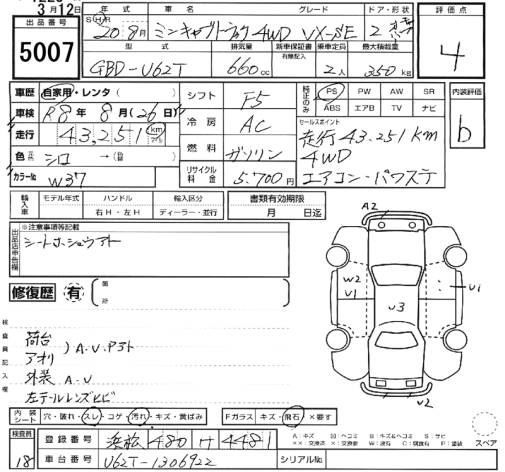 3月12日
出品番号
5007
年式
車名
グレード
ドア・形状
S H R
20 8月
ミニキャブトラック 4WD VX-SE 2
型式
排気量
新車保証書
有無記入
乗車定員
最大積載量
GBD-U62T
660cc
2人
350kg
評価点
4
車歴
自家用・レンタ( )
車検
R8年8月(26日)
走行
43,251km
色
シロ → ( )
カラー№
W37
シフト
F5
冷房
AC
燃料
ガソリン
リサイクル料金
5.700円
純正のみ
PS PW AW SR
ABS エアB TV ナビ
セールスポイント
走行43.251km
4WD
エアコン・パワステ
内装評価
b
輸入車
モデル年式
ハンドル
右H・左H
輸入区分
ディーラー・並行
書類有効期限
月 日迄
※注意事項等記載
シート
修復歴
有
検査員記入欄
荷台
アオリ
)A-V.
外装 A-V
左テールレンズヒビ
A2
W2
U1
U3
U1
U2
内装シート
穴・破れ・スレ・コゲ・汚れ・キズ・黄ばみ
Fガラス キズ・飛石・×要す
検査員
18
登録番号
浜松 480 サ 4481
車台番号
U62T-1306922
シリアル№
スペア